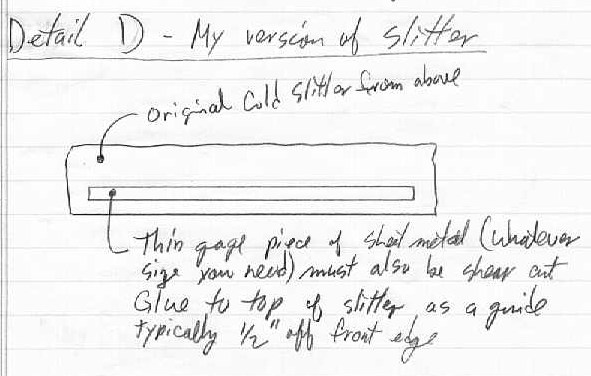 Detail D - My version of slitter
original Cold slitter from above
Thin gage piece of sheet metal (whatever
size you need) must also be shear cut
Glue to top of slitter as a guide
typically 1/2" off front edge